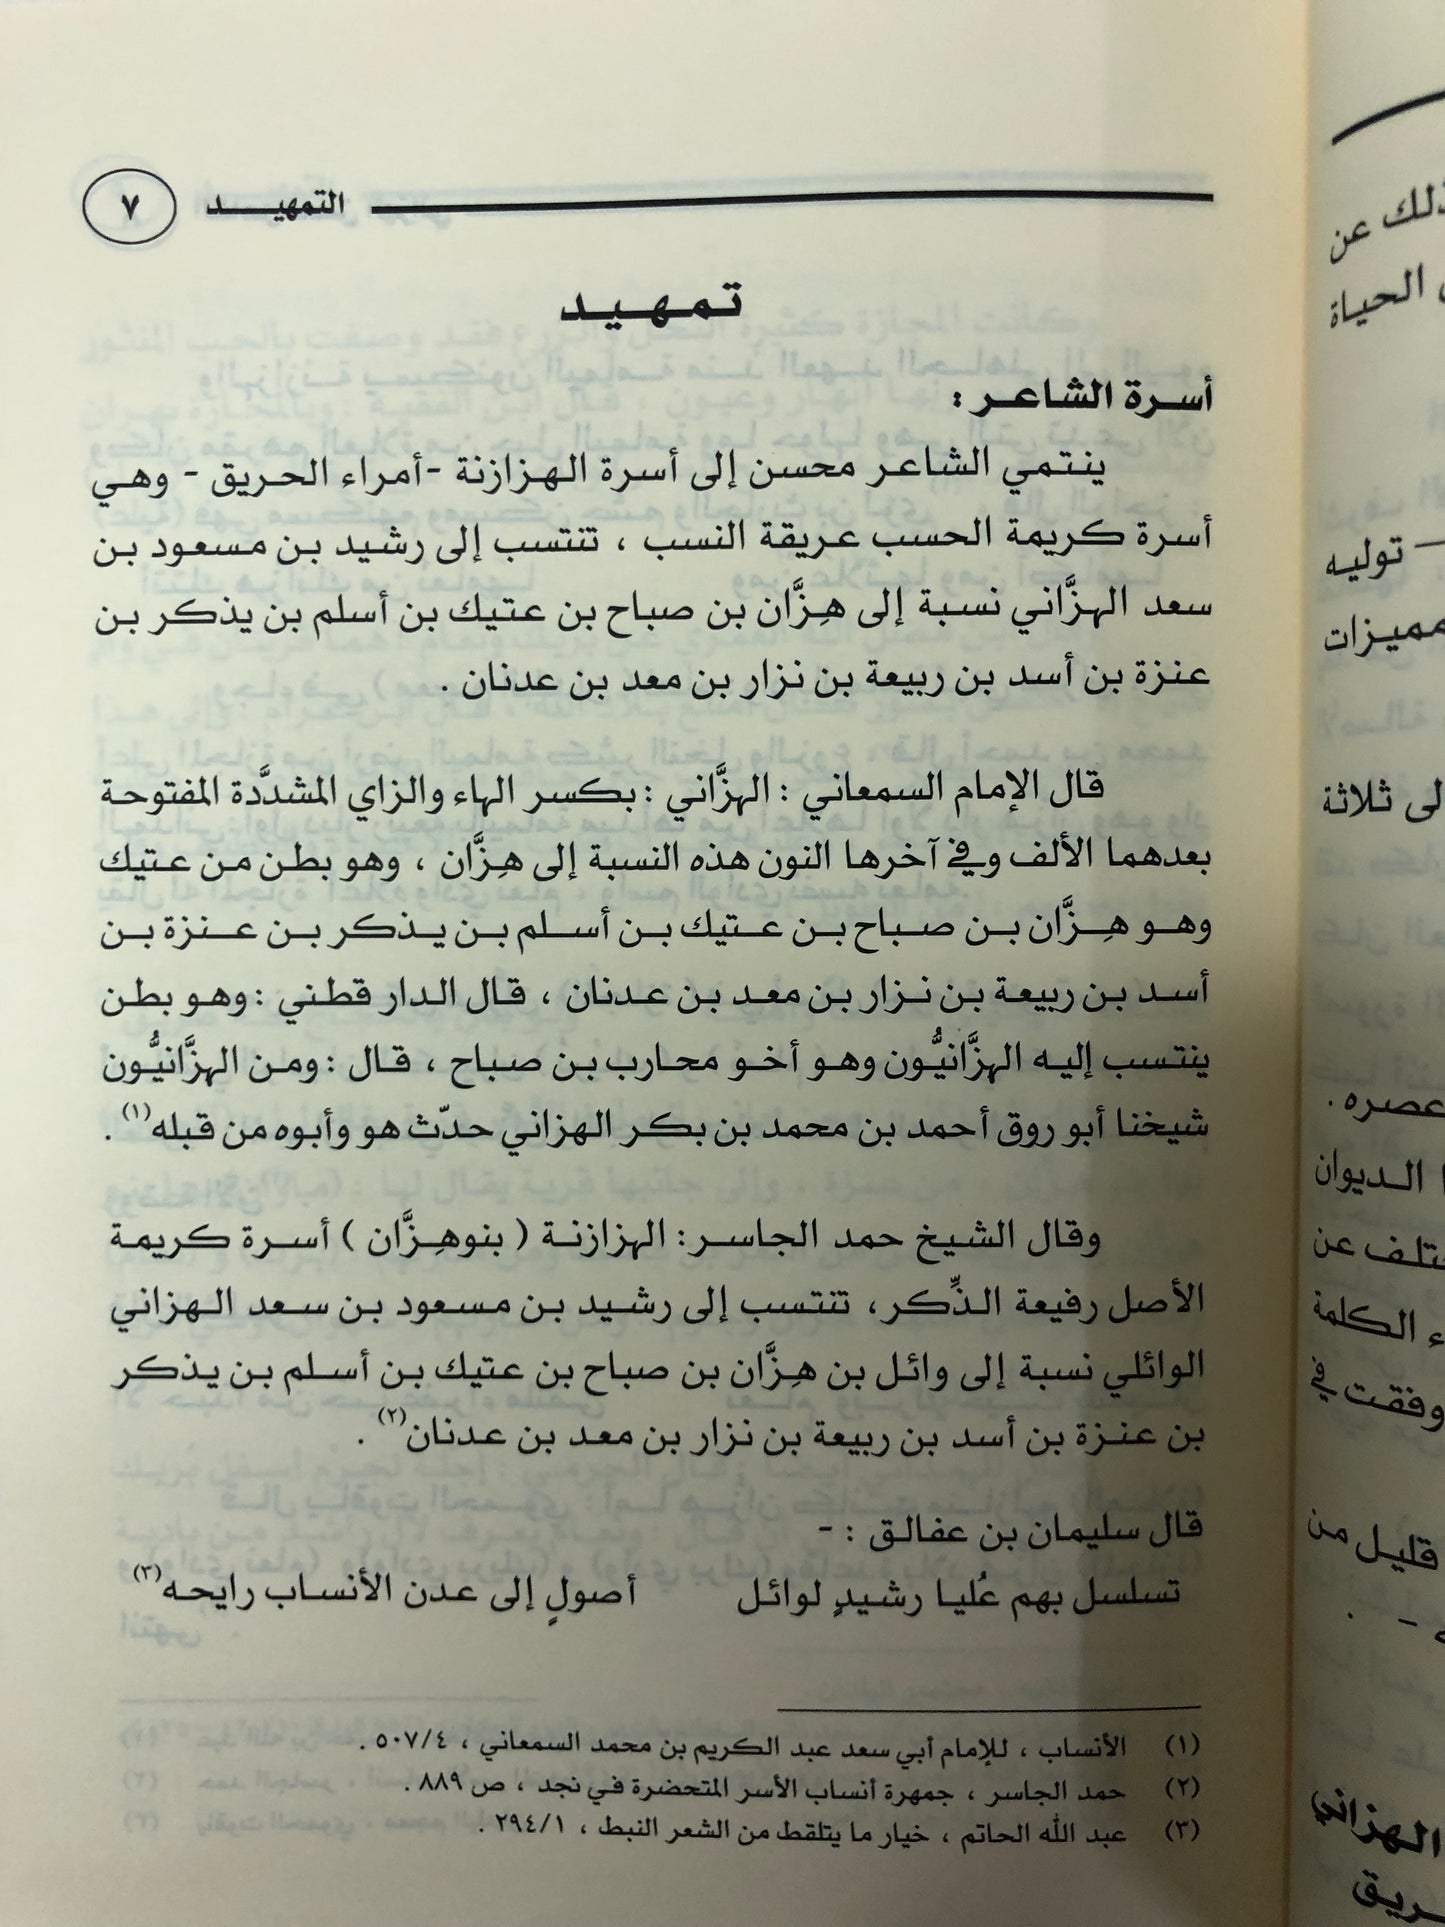 التمهيد ٧
تمهيد
أسرة الشاعر :
ينتمي الشاعر محسن إلى أسرة الهزازنة -أمراء الحريق - وهي
أسرة كريمة الحسب عريقة النسب ، تنتسب إلى رشيد بن مسعود بن
سعد الهزَّاني نسبة إلى هِزَّان بن صباح بن عتيك بن أسلم بن يذكر بن
عنزة بن أسد بن ربيعة بن نزار بن معد بن عدنان .
قال الإمام السمعاني : الهزَّاني : بكسر الهاء والزاي المشدَّدة المفتوحة
بعدهما الألف وفي آخرها النون هذه النسبة إلى هِزَّان ، وهو بطن من عتيك
وهو هِزَّان بن صباح بن عتيك بن أسلم بن يذكر بن عنزة بن
أسد بن ربيعة بن نزار بن معد بن عدنان ، قال الدار قطني : وهو بطن
ينتسب إليه الهزَّانيُّون وهو أخو محارب بن صباح ، قال : ومن الهزَّانيُّون
شيخنا أبو روق أحمد بن محمد بن بكر الهزاني حدّث هو وأبوه من قبله(١) .
وقال الشيخ حمد الجاسر : الهزازنة ( بنوهِزَّان ) أسرة كريمة
الأصل رفيعة الذِّكر ، تنتسب إلى رشيد بن مسعود بن سعد الهزاني
الوائلي نسبة إلى وائل بن هِزَّان بن صباح بن عتيك بن أسلم بن يذكر
بن عنزة بن أسد بن ربيعة بن نزار بن معد بن عدنان(٢) .
قال سليمان بن عفالق : -
تسلسل بهم عُليا رشيدٍ لوائل أصولٍ إلى عدن الأنساب رايحه(٣)
(١) الأنساب ، للإمام أبي سعد عبد الكريم بن محمد السمعاني ، ٥٠٧/٤ .
(٢) حمد الجاسر ، جمهرة أنساب الأسر المتحضرة في نجد ، ص ٨٨٩ .
(٣) عبد الله الحاتم ، خيار ما يتلقط من الشعر النبط ، ٢٩٤/١ .
عن
الحياة
توليه
ثلاثة
عصره .
الديوان
عن
الكلمة
وفقت في
قليل من